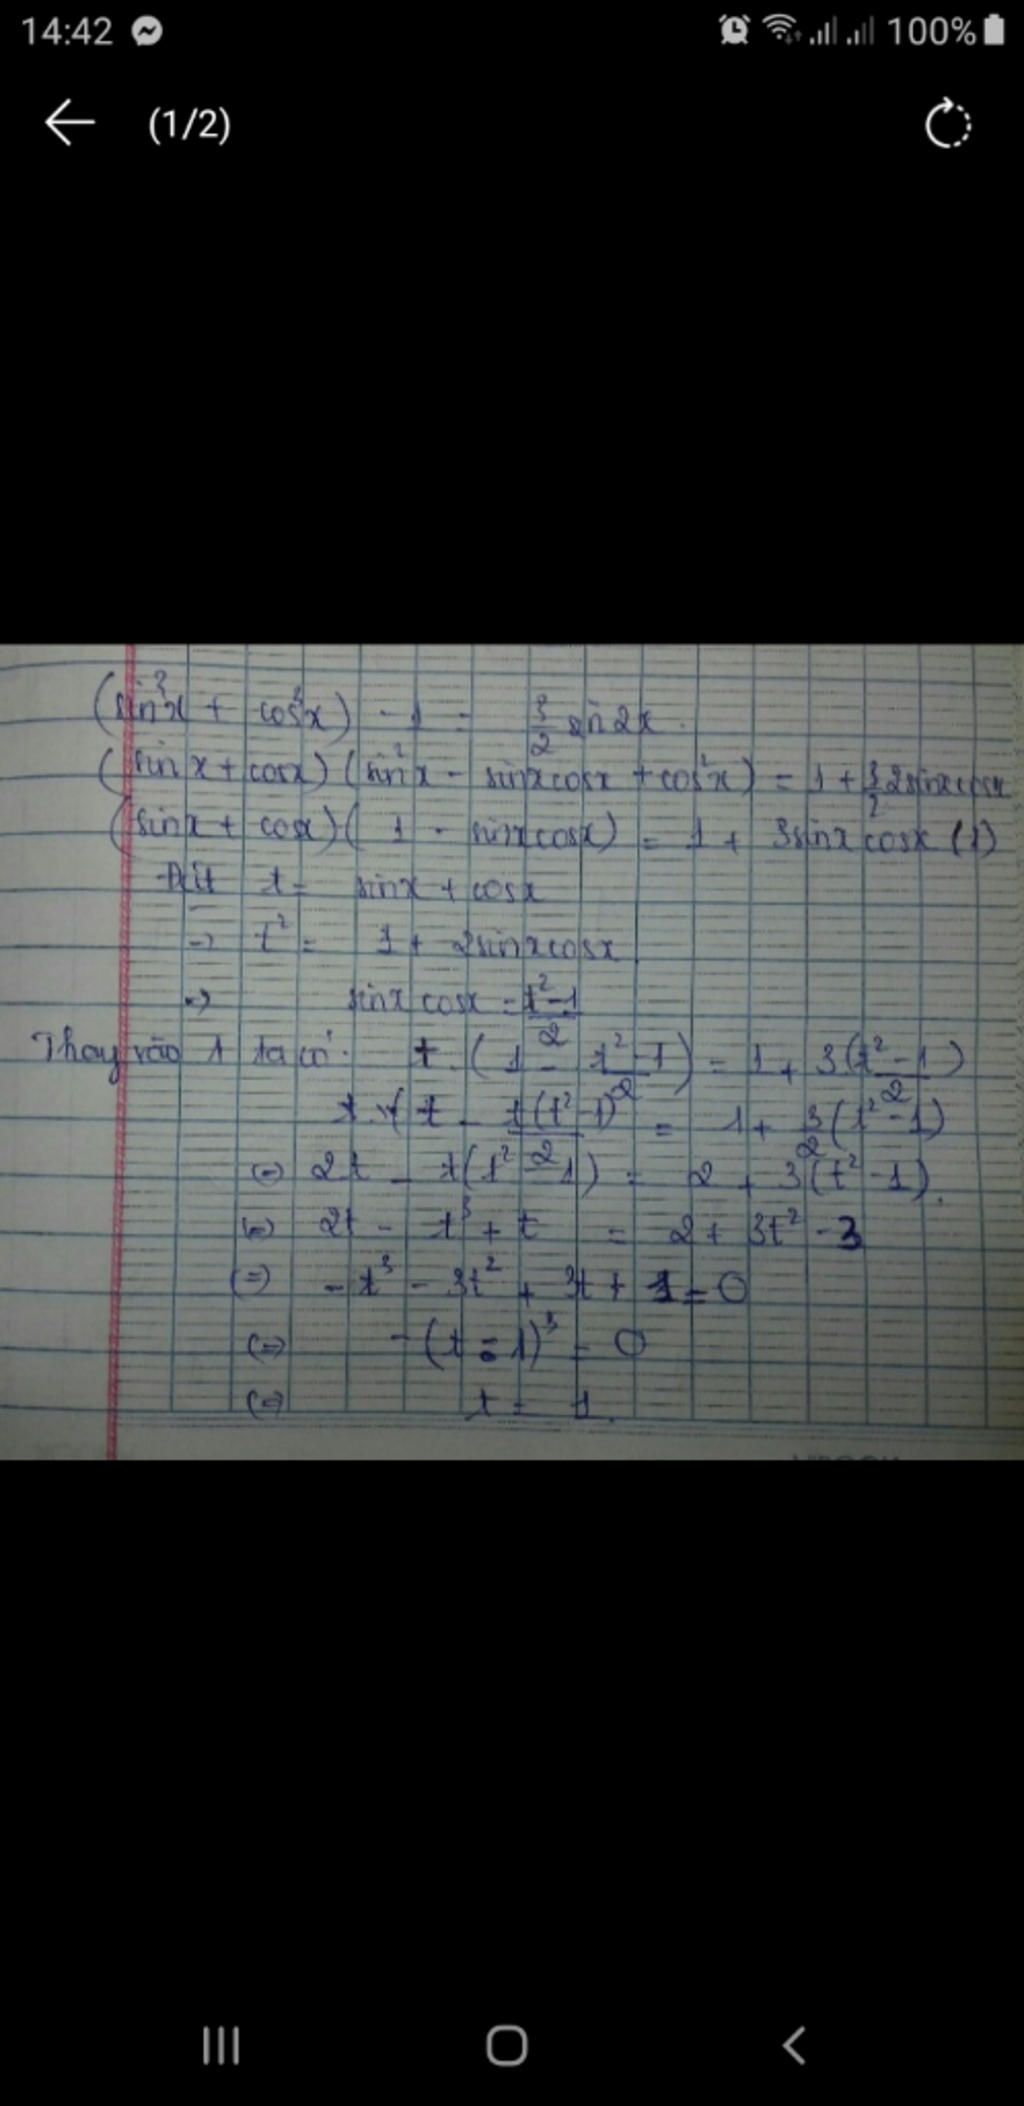 14:42 100%
(1/2)
(sin³x + cos³x) - 1 = 3/2 sin 2x.
(sinx + cosx)(sin²x - sinxcosx + cos²x) = 1 + 3/2 2sinxcosx
(sinx + cosx)(1 - sinxcosx) = 1 + 3sinx cosx (1)
Đặt t = sinx + cosx
→ t² = 1 + 2sinxcosx
→ sinx cosx = t²-1/2
Thay vào 1 ta có: t.(1 - t²-1/2) = 1 + 3(t²-1/2)
t - t(t²-1)/2 = 1 + 3/2(t²-1)
(=) 2t - t(t²-1) = 2 + 3(t²-1).
(=) 2t - t³ + t = 2 + 3t² - 3
(=) -t³ - 3t² + 3t + 1 = 0
(=) -(t - 1)³ = 0
(=) t = 1.